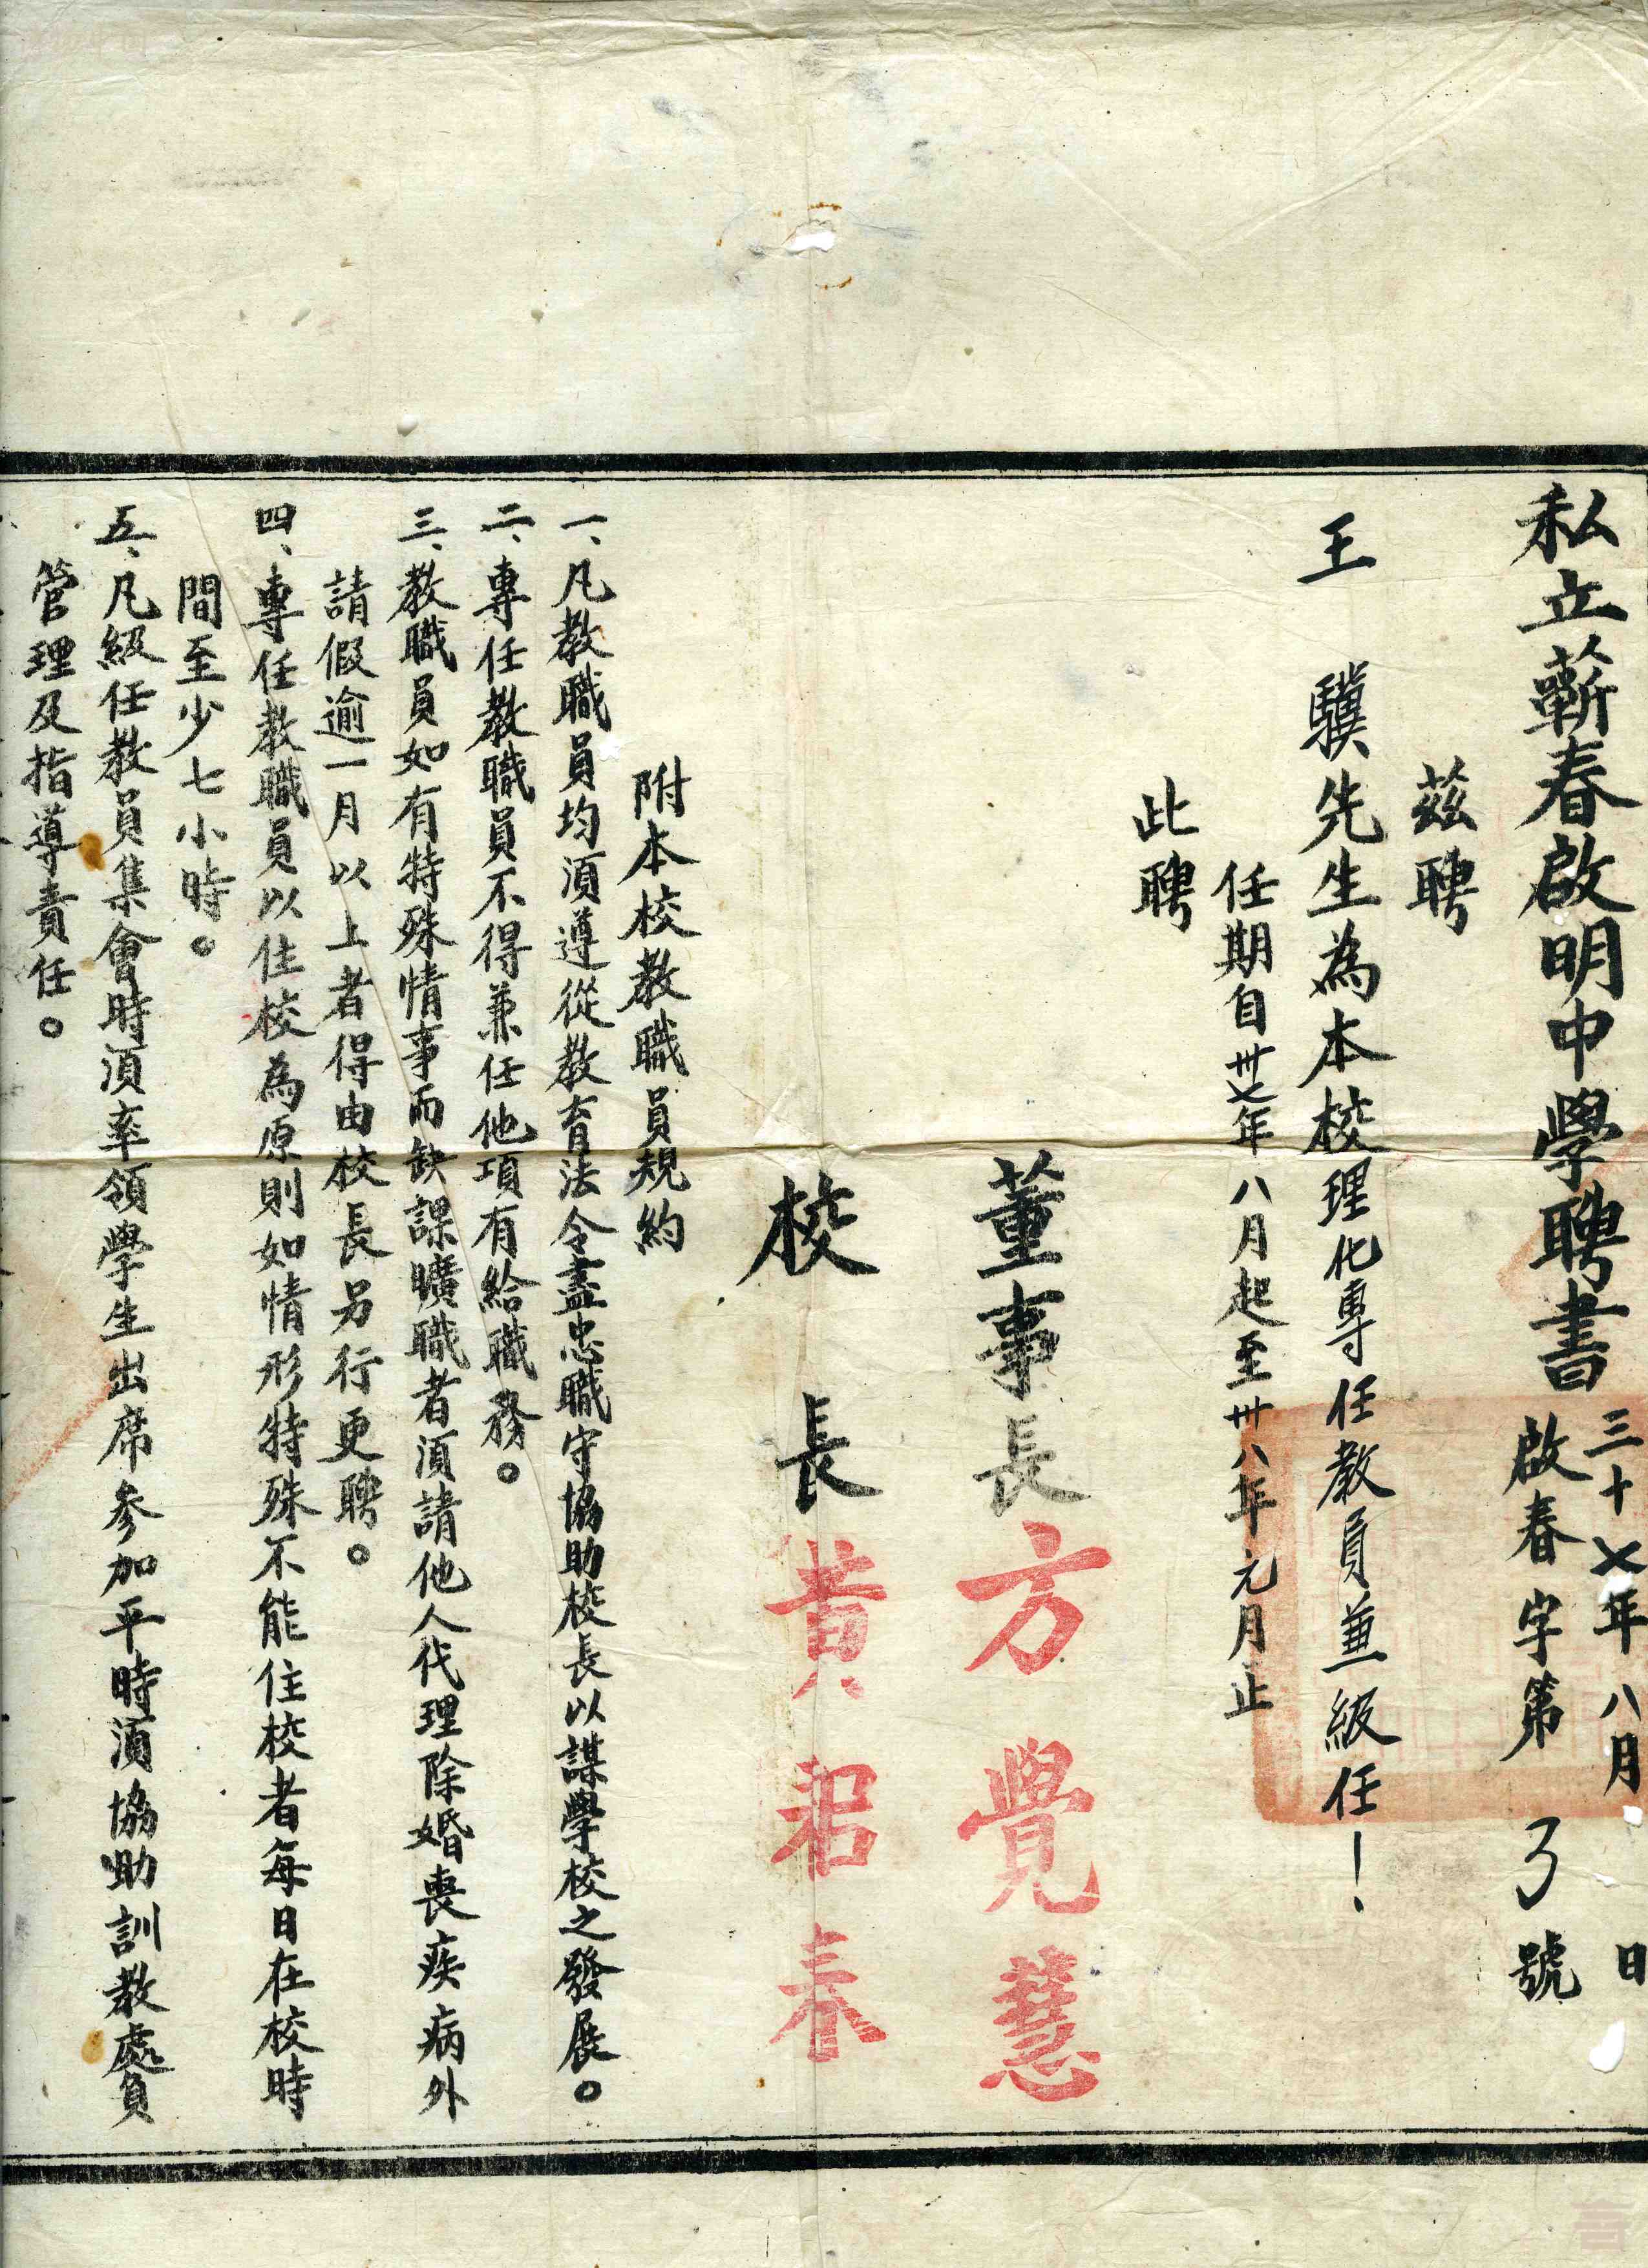 私立蘄春啟明中學聘書
三十七年八月 日
啟春字第 號
茲聘
王 驥先生為本校理化專任教員兼級任！
任期自卅七年八月起至卅八年元月止
此聘
董事長 方覺慧
校 長 黃君泰
附本校教職員規約
一、凡教職員均須遵從教育法令盡忠職守協助校長以謀學校之發展。
二、專任教職員不得兼任他項有給職務。
三、教職員如有特殊情事而缺課曠職者須請他人代理除婚喪疾病外
請假逾一月以上者得由校長另行更聘。
四、專任教職員以住校為原則如情形特殊不能住校者每日在校時
間至少七小時。
五、凡級任教員集會時須率領學生出席參加平時須協助訓教處負
管理及指導責任。